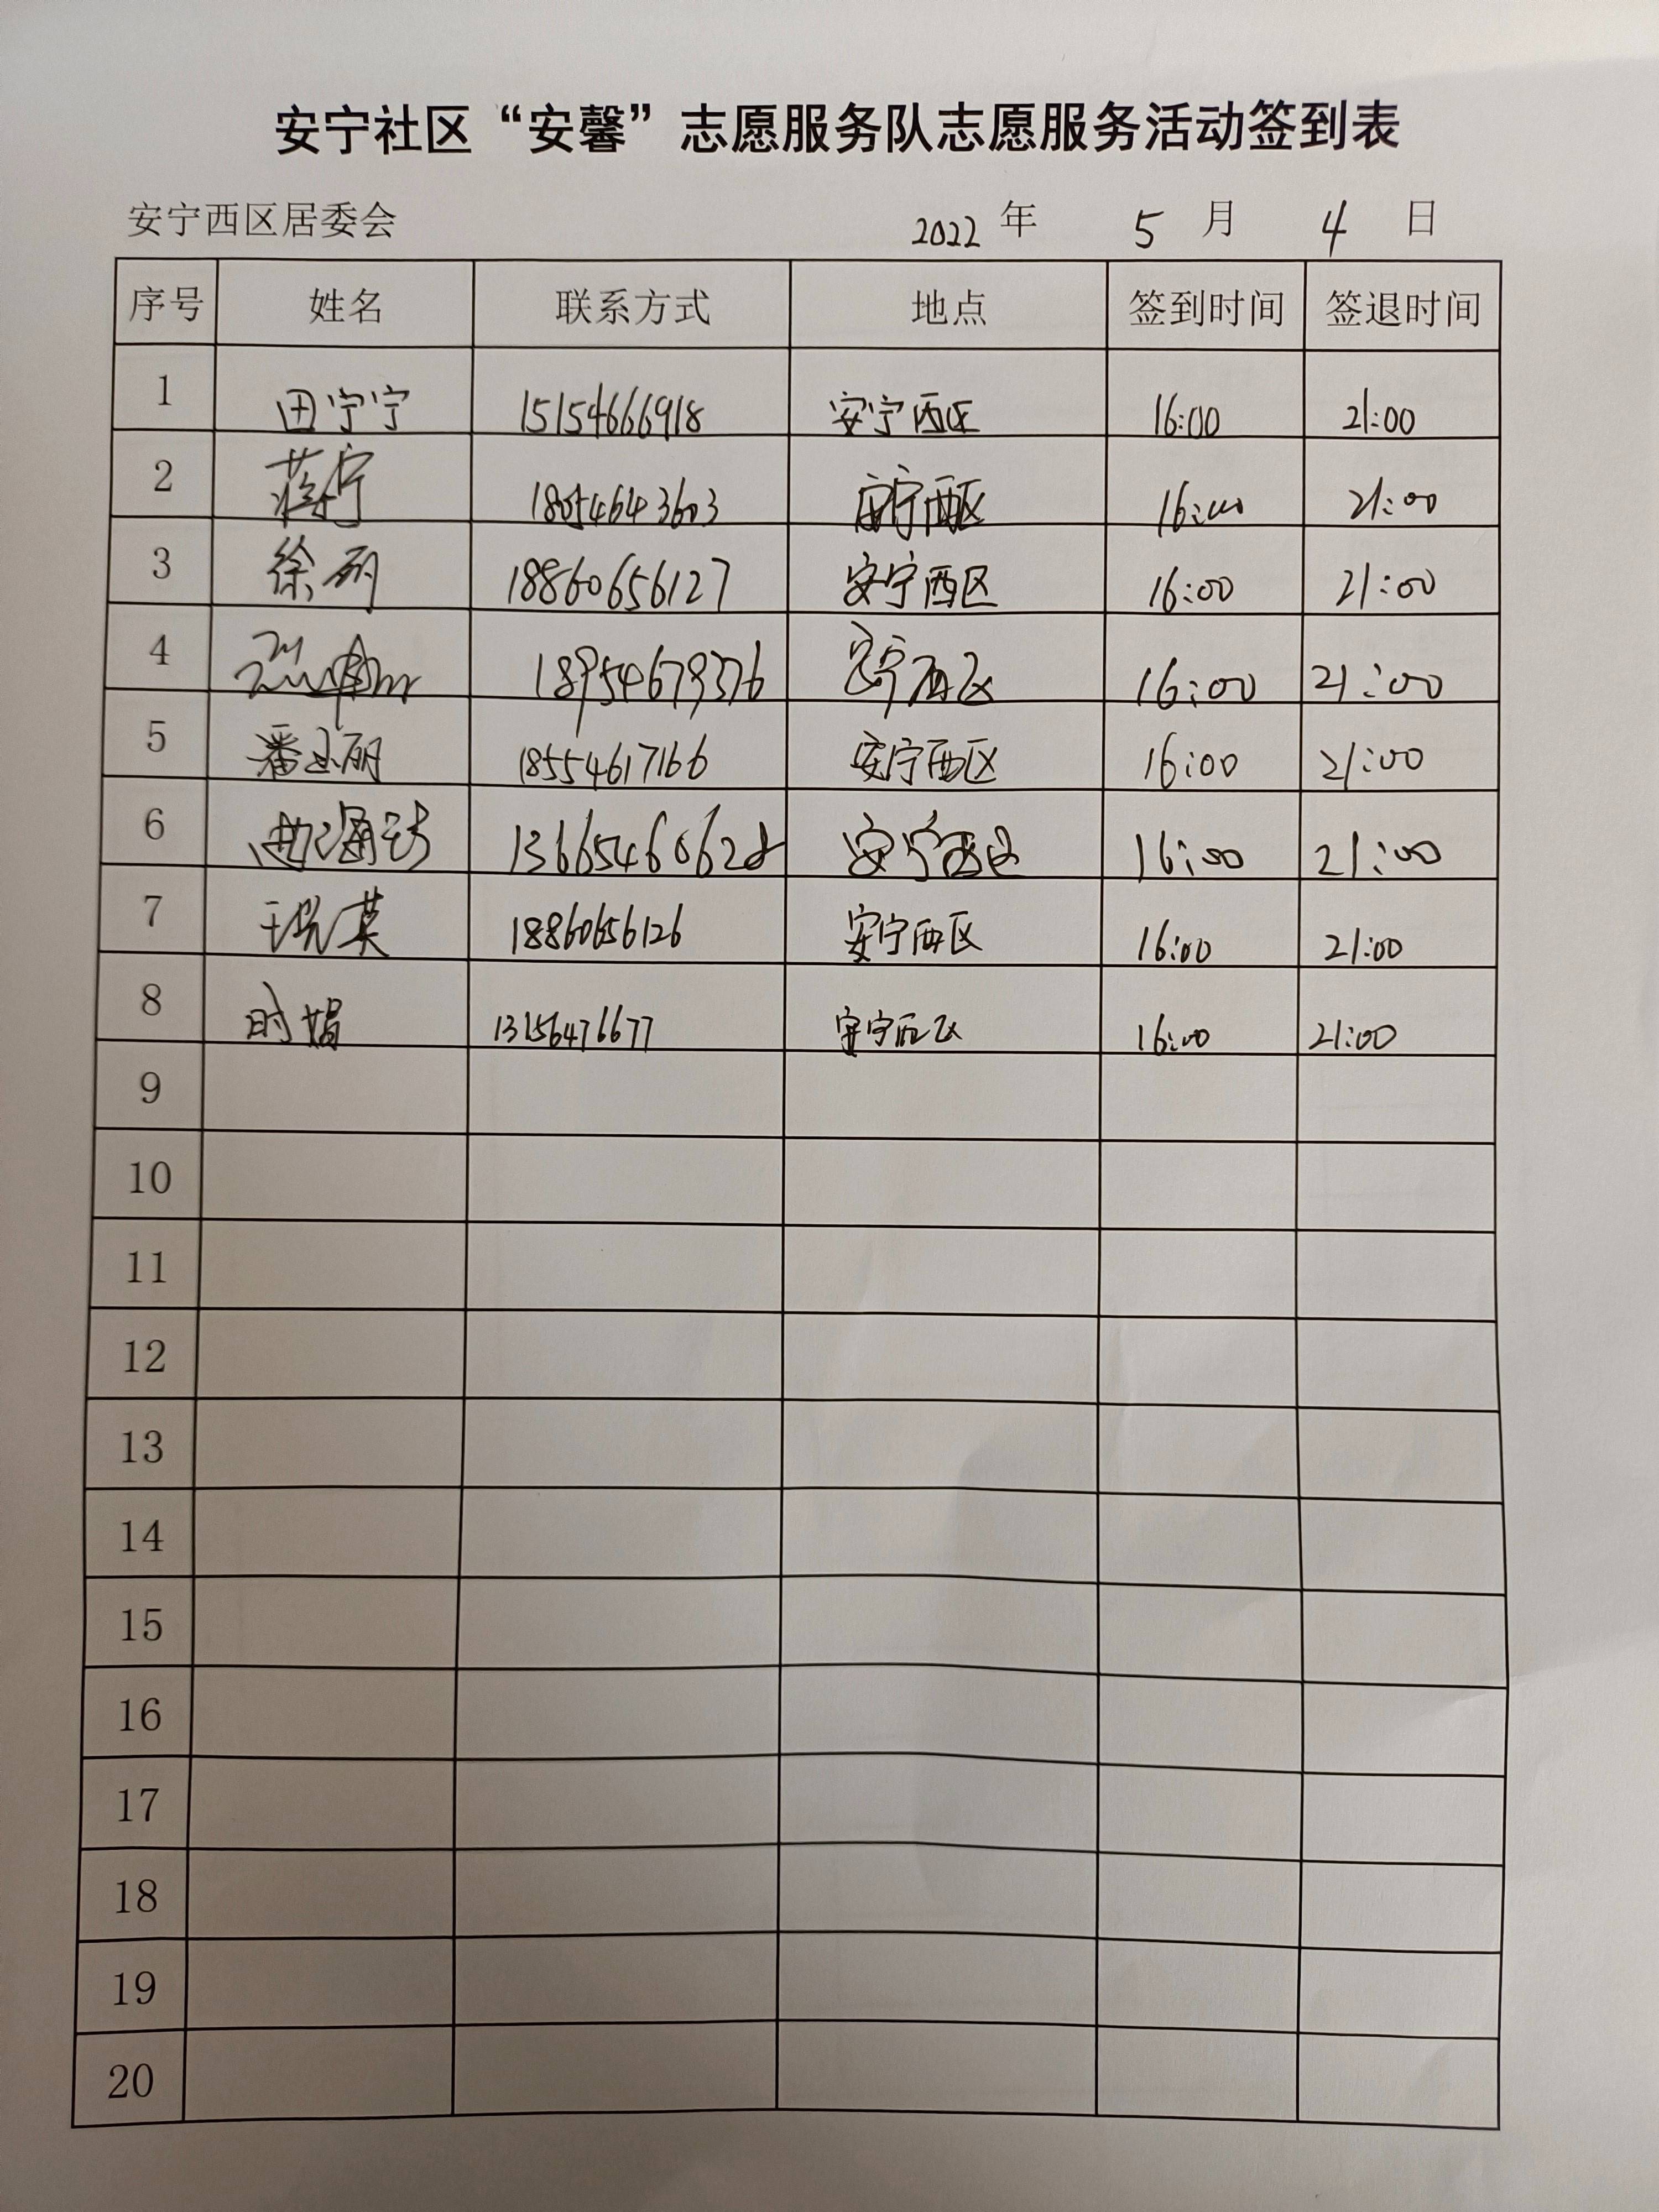 安宁社区“安馨”志愿服务队志愿服务活动签到表
安宁西区居委会 2022 年 5 月 4 日
序号 姓名 联系方式 地点 签到时间 签退时间
1 田宁宁 15154666918 安宁西区 16:00 21:00
2 蒋宁 18054643603 安宁西区 16:00 21:00
3 徐丽 18860656127 安宁西区 16:00 21:00
4 18954679376 安宁西区 16:00 21:00
5 潘玉丽 18554617166 安宁西区 16:00 21:00
6 13665460628 安宁西区 16:00 21:00
7 18860656126 安宁西区 16:00 21:00
8 时娟 13156476677 安宁西区 16:00 21:00
9
10
11
12
13
14
15
16
17
18
19
20